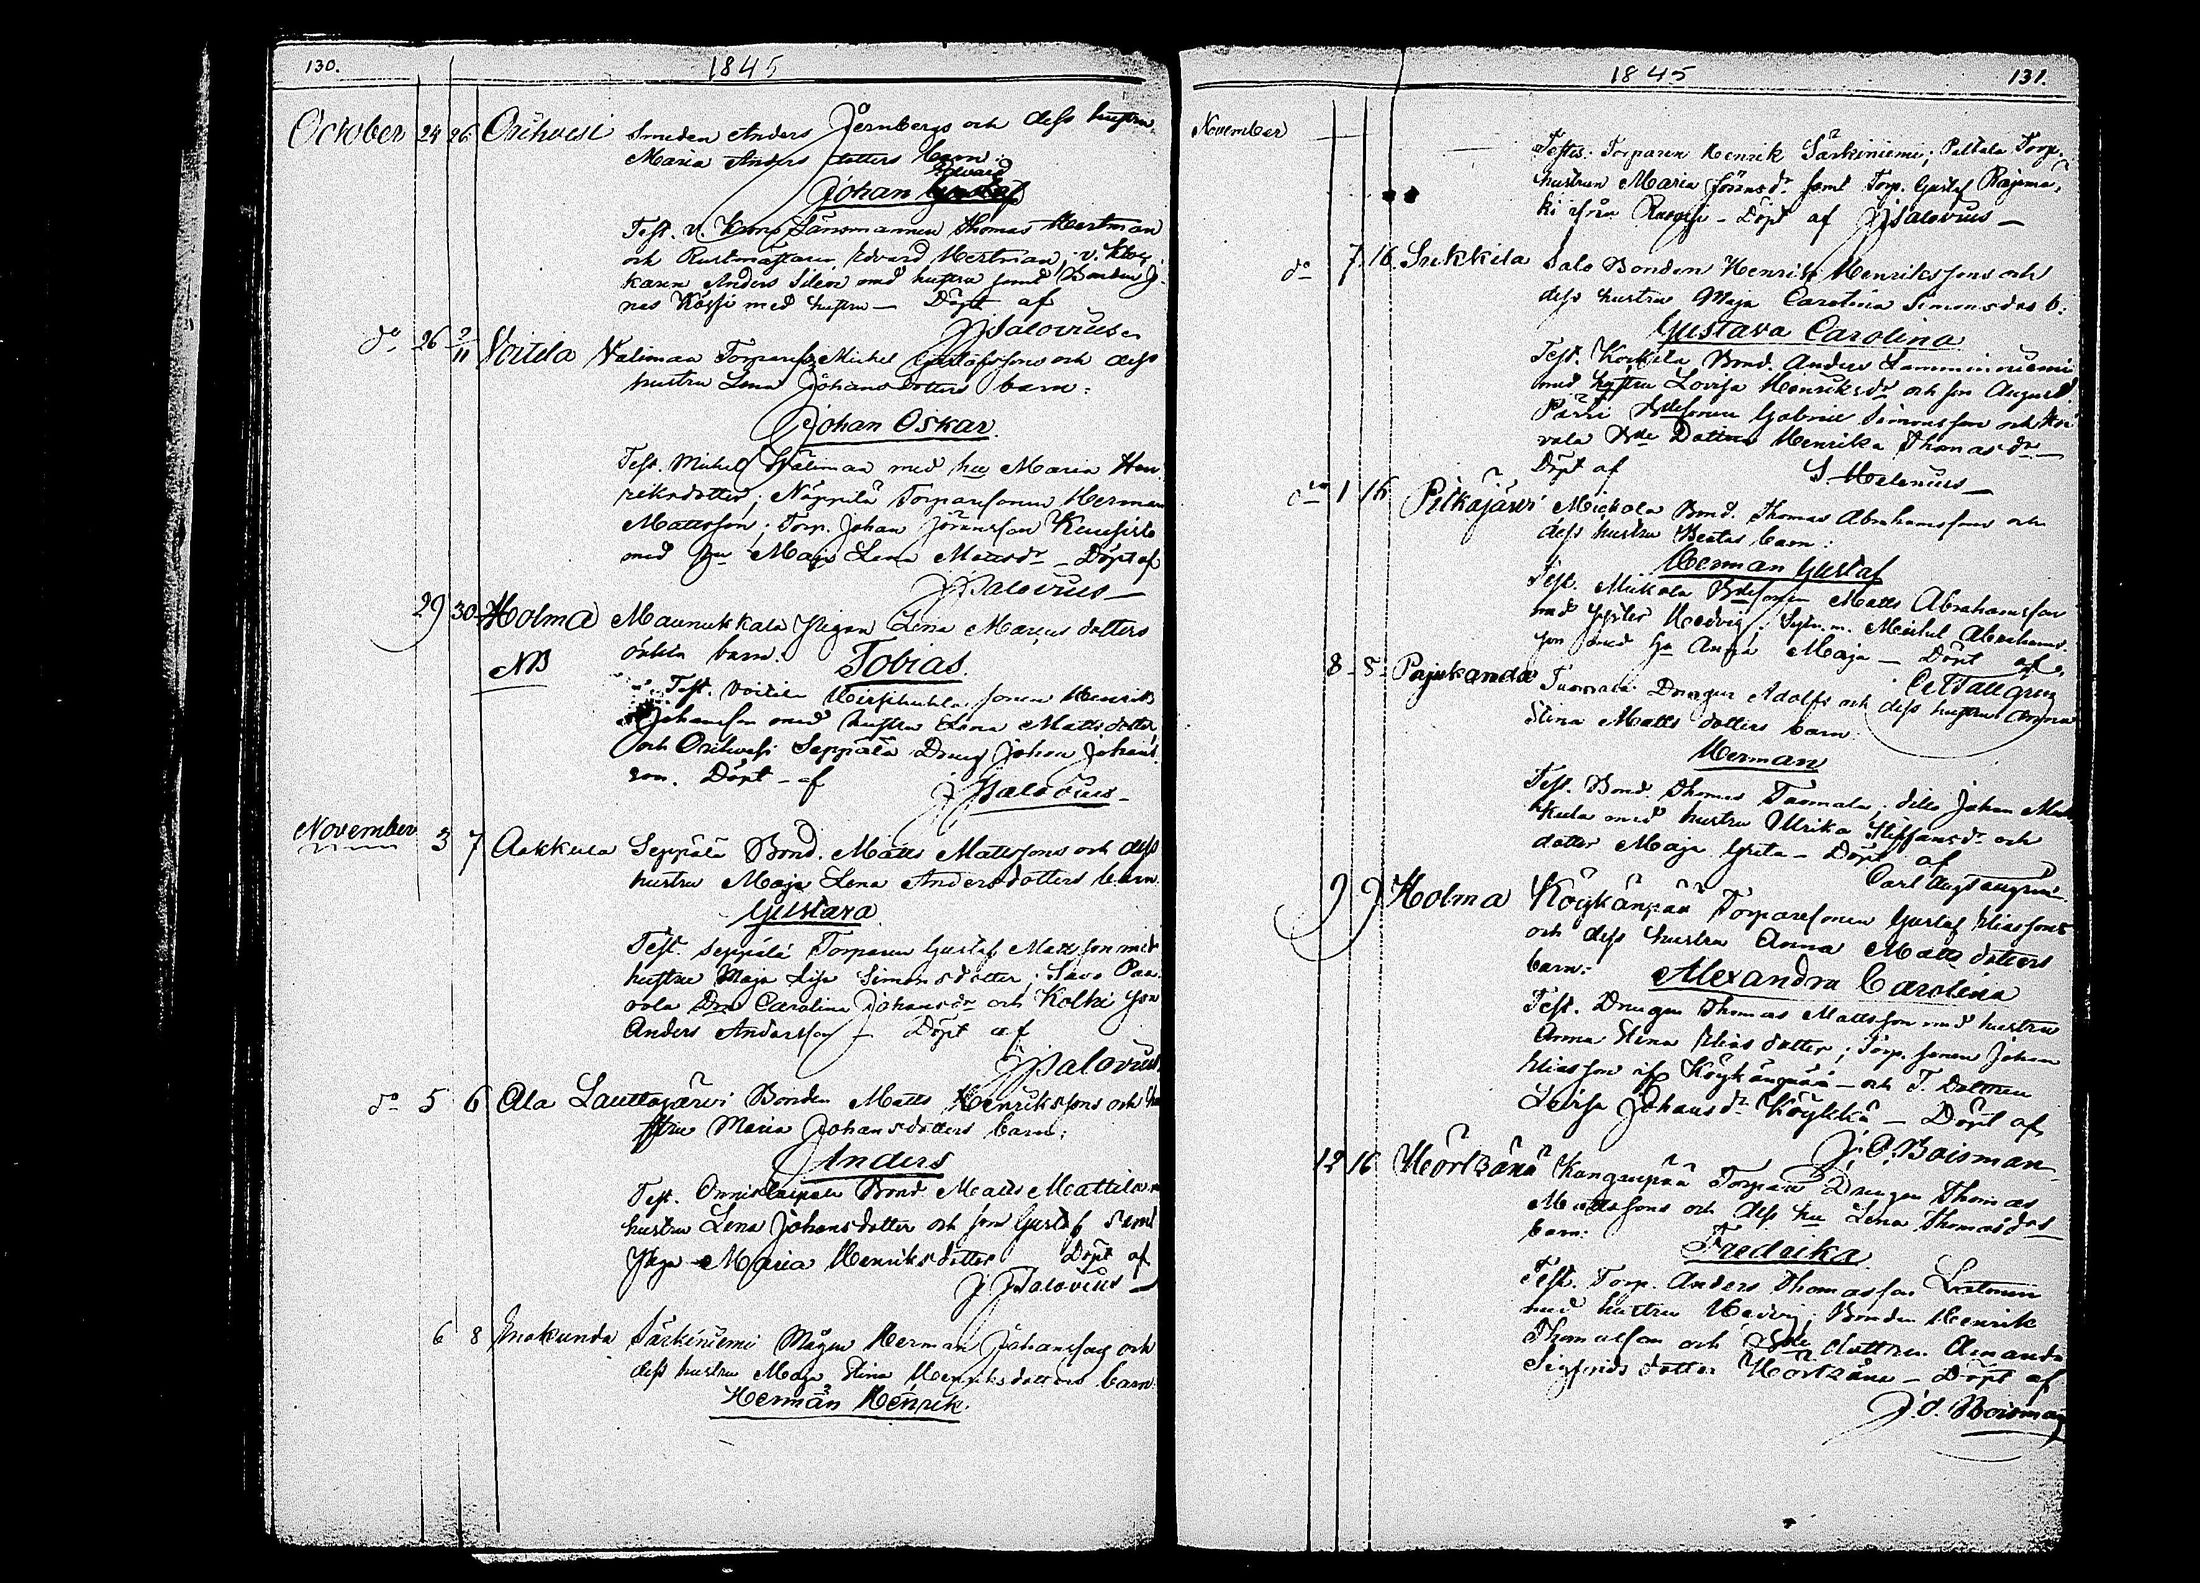 130.
1845
October 24 26 Orihvesi Smeden Anders Jernbergs och dess hustru
Maria Anders dotters barn:
Edvard
Johan Gustaf
Test. v. Länsmannen Thomas Mertman
och Rustmästaren Edvard Mertman, v. Kloc-
karen Anders Silen med hustru samt Bonden Jo-
nas med hustru — Döpt af
JJSalovius.
do 26 2/11 Voitila Välimaa Michel Gustafssons och dess
hustru Lena Johans dotters barn:
Johan Oskar
Test. Michel Wälimaa med hu Maria Hen-
riksdotter, Näppilä Torparesonen Herman
Mattsson; Torp. Johan Jöransson Kuusisto
med hu Maja Lena Mattsdr — Döpt af
JJSalovius —
29 30 Holma Maunukkala Pigan Lena Marcus dotters
oäkta barn. Tobias
NB
Test. Voitila sonen Henrik
Johansson med hustru Lena Matts dotter,
och Orihvesi Seppälä Dreng Johan Johans-
son. Döpt af JJSalovius —
November 3 7 Aakkula Seppälä Bond. Matts Mattssons och dess
hustru Maja Lena Anders dotters barn
Gustava
Test. Seppälä Torparen Gustaf Mattsson med
hustru Maja Lisa Simonsdotter; Savo Paa-
vola Dra Carolina Johansdr och Kolhi son
Anders Andersson — Döpt af
JJSalovius
do 5 6 Ala Lauttajärvi Bonden Matts Henrikssons och hu-
stru Maria Johansdotters barn:
Anders
Test. Bond Matts Mattila m
hustru Lena Johansdotter och son Gustaf samt
Piga Maria Henriksdotter Döpt af
JJSalovius —
6 8 Enokunda Särkiniemi Mågen Herman Johanssons och
dess hustru Maja Stina Henriksdotters barn
Herman Henrik.
1845
131.
November
Testes: Torparen Henrik Särkiniemi; Paltala Torp-
hustrun Maria Jöransdr samt Torp. Gustaf Rajamä-
ki från — Döpt af JJSalovius —
do 7 16 Sukkila Salo Bonden Henrik Henrikssons och
dess hustru Maja Carolina Simonsdrs b:
Gustava Carolina
Test. Korkila Bond. Anders Lamminniemi
med hustru Lovisa Henriksdr och son August.
Pärri Bdesonen Gabriel Simonsson och
vola Bde Dottren Henrika Thomasdr —
Döpt af S Helenius —
do 1 16 Pitkäjärvi Mickola Bond. Thomas Abrahamssons och
dess hustru Beatas barn:
Herman Gustaf
Test. Mickola Bdesonen Matts Abrahamsson
med syster Hedvig; Sytn. m. Michel Abrahams-
son med hu Anna Maja — Döpt af
C A Tallgren
8 5 Pajukanda Tuomala Drengen Adolfs och dess hustru Anna
Stina Matts dotters barn
Herman
Test. Bond. Thomas Tuomala; dito Johan
kula med hustru Ulrika Stephansdr och
dotter Maja Greta — Döpt af
Carl Aug Tallgren
9 9 Holma Köykänpää Torparesonen Gustaf Eliassons
och dess hustru Anna Matts dotters
barn: Alexandra Carolina
Test. Drengen Thomas Mattsson med hustru
Anna Stina Elias dotter; Torp. sonen Johan
Eliasson af Köykänpää — och T. Dottren
Lovisa Johansdr Köykkä — Döpt af
J. O. Boisman
12 16 Hörtsänä Kangaspää Torpare Drengen Thomas
Mattssons och dess hu Lena Thomasdrs
barn: Fredrika
Test. Torp. Anders Thomasson
med hustru Hedvig; Bonden Henrik
Thomasson och Bde dottren Amanda
Sigfrids dotter Hörtsänä — Döpt af
J. O. Boisman